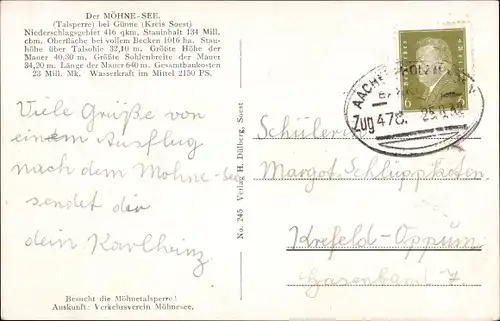 Der MÖHNE-SEE.
(Talsperre) bei Günne (Kreis Soest)
Niederschlagsgebiet 416 qkm. Stauinhalt 134 Mill.
cbm. Oberfläche bei vollem Becken 1016 ha. Stau-
höhe über Talsohle 32,10 m. Größte Höhe der
Mauer 40,30 m. Größte Sohlenbreite der Mauer
34,20 m. Länge der Mauer 640 m. Gesamtbaukosten
23 Mill. Mk. Wasserkraft im Mittel 2150 PS.
Viele Grüße von
einem Ausflug
nach dem Möhne-See
sendet dir
dein Karlheinz
Besucht die Möhnetalsperre!
Auskunft: Verkehrsverein Möhnesee.
No. 245 Verlag H. Dülberg, Soest
AACHEN
Zug 478
6
Schülerin
Margot Schluppkoten
Krefeld-Oppum
Hasenband 7